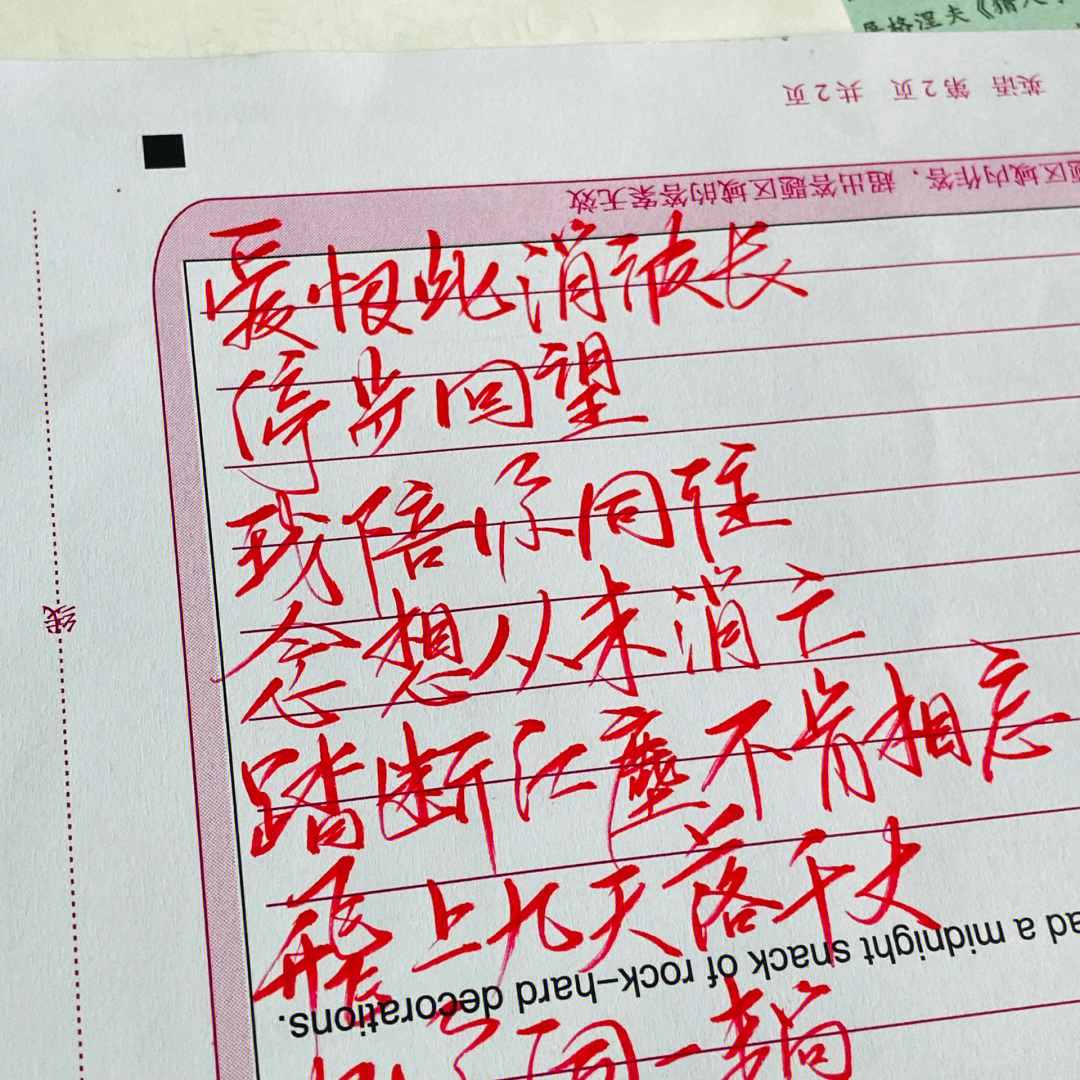 屠格涅夫《猎人
英语 第2页 共2页
题区域内作答，超出答题区域的答案无效
爱恨此消彼长
停步回望
我陪你同往
念想从未消亡
踏断红塵不肯相忘
飛上九天落千丈
ad a midnight snack of rock-hard decorations.
线